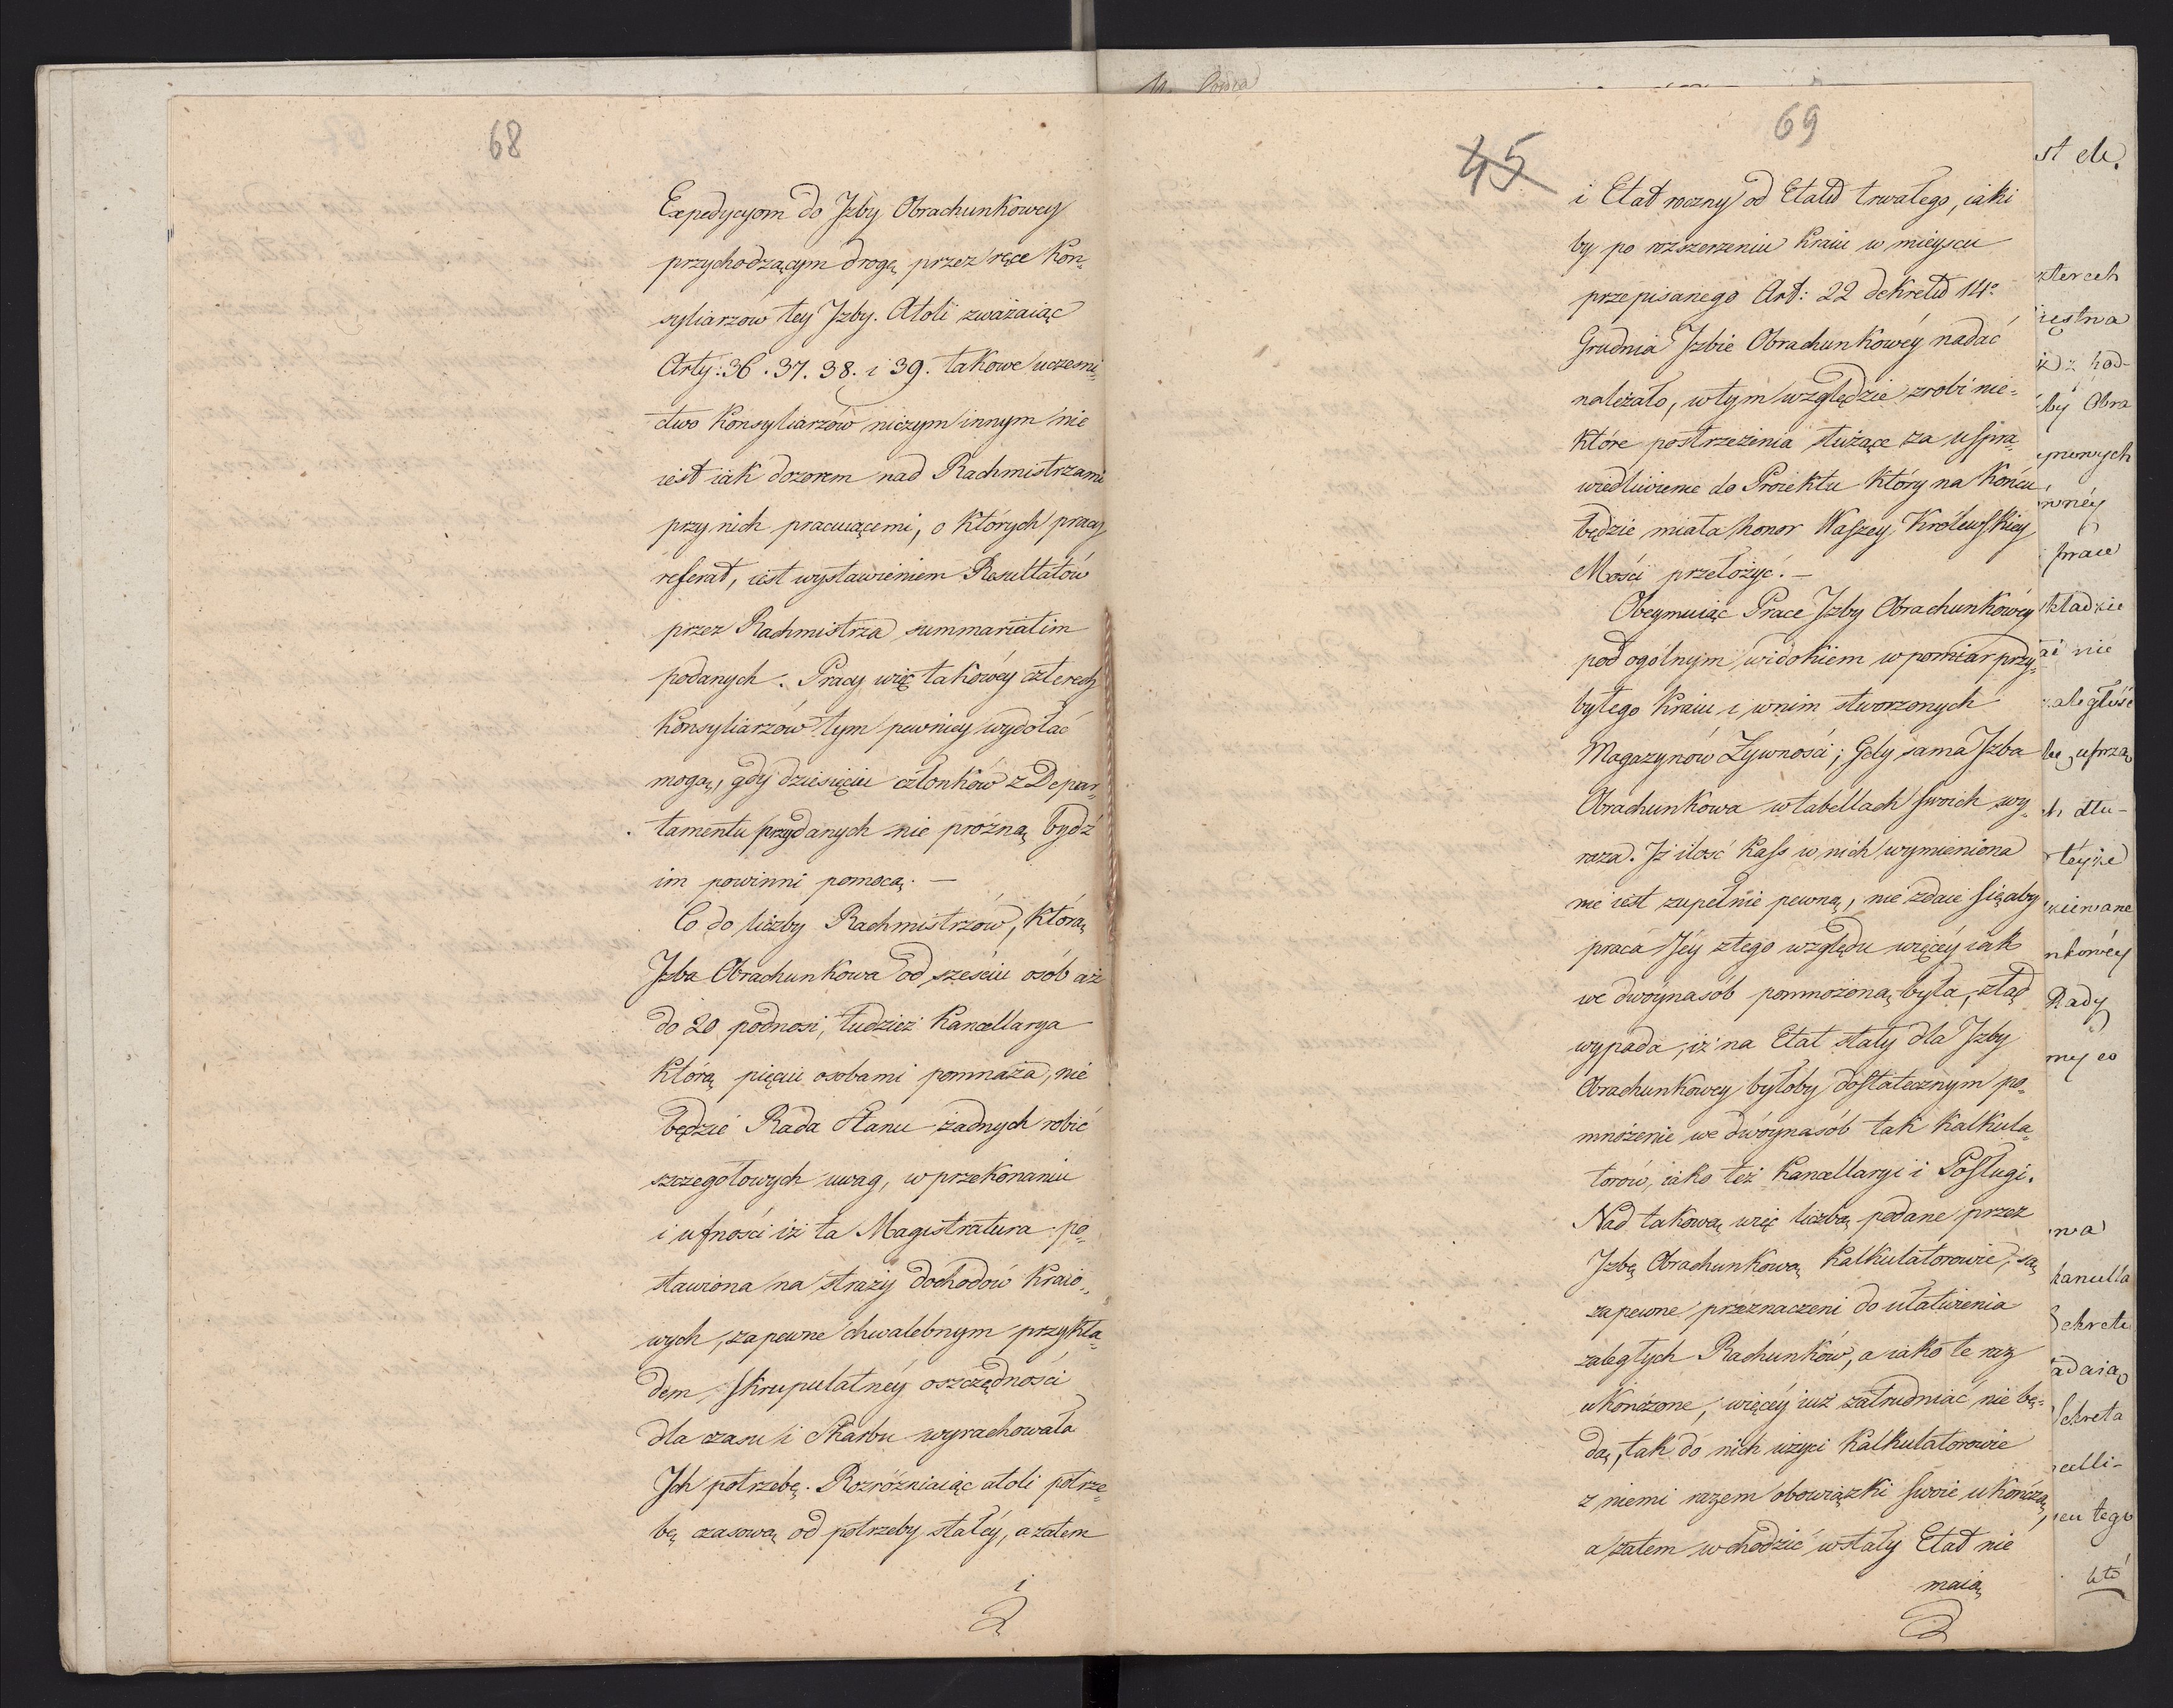 68
Expedycyom do Jzby Obrachunkowey
przychodzącym drogą przez ręce Kon„
syliarzów tey Jzby. Atoli zważaiąc
Arty: 36. 37. 38. i 39. takowe uczestni„
ctwo Konsyliarzów niczym innym nie
iest iak dozorem nad Rachmistrzami
przy nich pracuiącemi, o których pracy
referat, iest wystawieniem Resultatów
przez Rachmistrza summariatim
podanych. Pracy więc takowéy czterech
Konsyliarzów tym pewniey wydołać
mogą, gdy dziesięciu członków z Depar„
tamentu przydanych nie próżną bydź
im powinni pomocą. —
Co do liczby Rachmistrzów, którą
Jzba Obrachunkowa od sześciu osób aż
do 20 podnosi, tudzież Kancellarya
którą pięciu osobami pomnaża, nie
będzie Rada Stanu żadnych robić
szczegołowych uwag, w przekonaniu
i ufności iż ta Magistratura po„
stawiona na straży dochodów Kraio„
wych, zapewne chwalebnym przykła„
dem skrupulatnéy oszczędności
dla czasu i Skarbu wyrachowała
Jch potrzebę. Rozróżniaiąc atoli potrze„
bę czasową od potrzeby stałéy, a zatem
i
69
45
i Etat roczny od Etatu trwałego, iaki
by po rozszerzeniu Kraiu w mieyscu
przepisanego Art: 22 dekretu 14º
Grudnia Jzbie Obrachunkowéy nadać
należało, w tym względzie zrobi nie„
które postrzeżenia służące za uspra„
wiedliwienie do Proiektu który na końcu
będzie miała honor Waszey Królewskiey
Mości przełożyć. —
Obeymuiąc Prace Jzby Obrachunkowéy
pod ogólnym widokiem w pomiar przy„
byłego Kraiu i w nim stworzonych
Magazynów Żywności; Gdy sama Jzba
Obrachunkowa w tabellach swoich wy„
raza. Jż ilość Kass w nich wymieniona
nie iest zupełnie pewną, nie zdaie się aby
praca Jéy z tego względu więcéy iak
we dwoynasób pomnożoną była, ztąd
wypada, iż na Etat stały dla Jzby
Obrachunkowey byłoby dostatecznym po„
mnożenie we dwóynasób tak Kalkula„
torów, iako też Kancellaryi i Posługi.
Nad takową więc liczbą podane przez
Jzbę Obrachunkową Kalkulatorowie, są
zapewne przeznaczeni do ułatwienia
zaległych Rachunków, a iako te raz
ukończone, więcéy iuż zatrudniać nie bę„
dą, tak do nich użyci Kalkulatorowie
z niemi razem obowiązki swoie ukończą,
a zatem wchodzić w stały Etat nie
maią